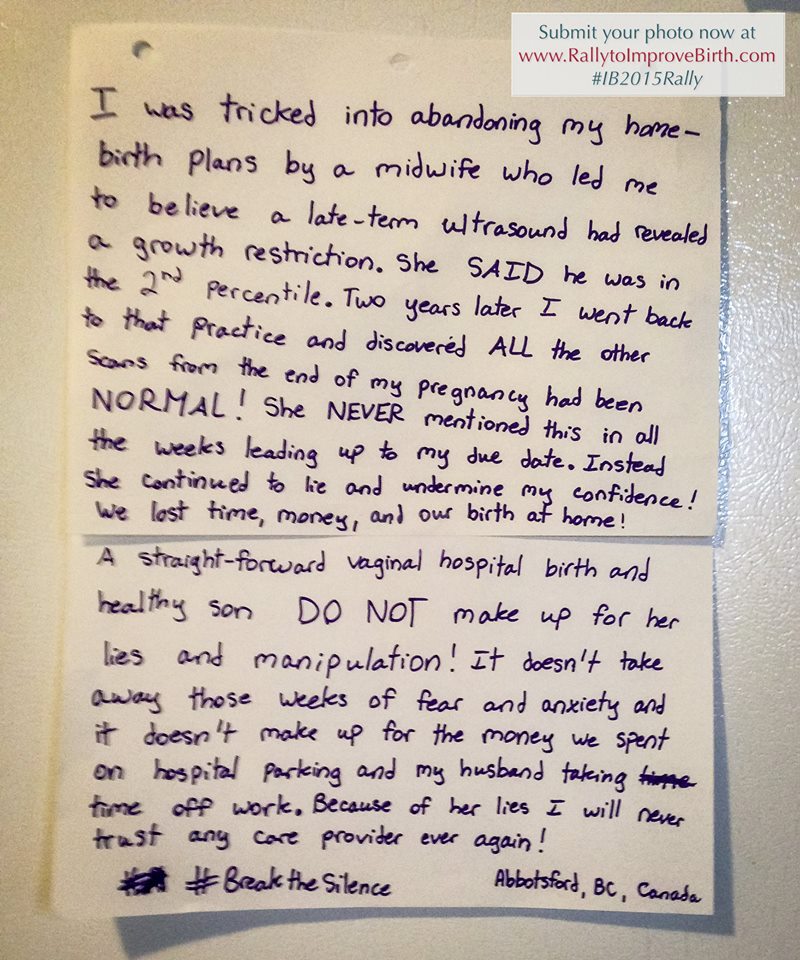 Submit your photo now at
www.RallytoImproveBirth.com
#IB2015Rally
I was tricked into abandoning my home-
birth plans by a midwife who led me
to believe a late-term ultrasound had revealed
a growth restriction. She SAID he was in
the 2nd percentile. Two years later I went back
to that practice and discovered ALL the other
scans from the end of my pregnancy had been
NORMAL! She NEVER mentioned this in all
the weeks leading up to my due date. Instead
she continued to lie and undermine my confidence!
We lost time, money, and our birth at home!
A straight-forward vaginal hospital birth and
healthy son DO NOT make up for her
lies and manipulation! It doesn't take
away those weeks of fear and anxiety and
it doesn't make up for the money we spent
on hospital parking and my husband taking time
time off work. Because of her lies I will never
trust any care provider ever again!
#BreaktheSilence
Abbotsford, BC, Canada